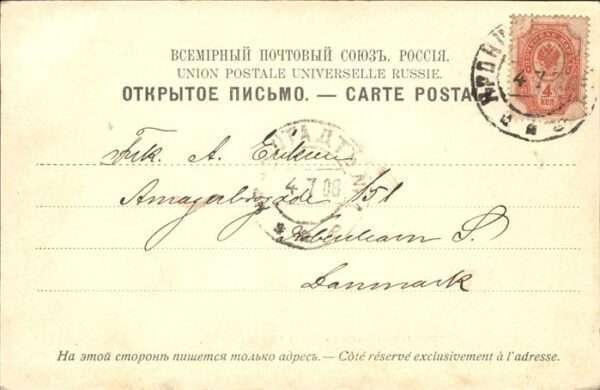 ВСЕМІРНЫЙ ПОЧТОВЫЙ СОЮЗЪ. РОССІЯ.
UNION POSTALE UNIVERSELLE RUSSIE.
ОТКРЫТОЕ ПИСЬМО. — CARTE POSTA
4 7
4
КОП
4 7 00
Frk. A.
Amagerbrogade 151
København S.
Danmark
На этой сторонѣ пишется только адресъ. — Côté réservé exclusivement à l'adresse.